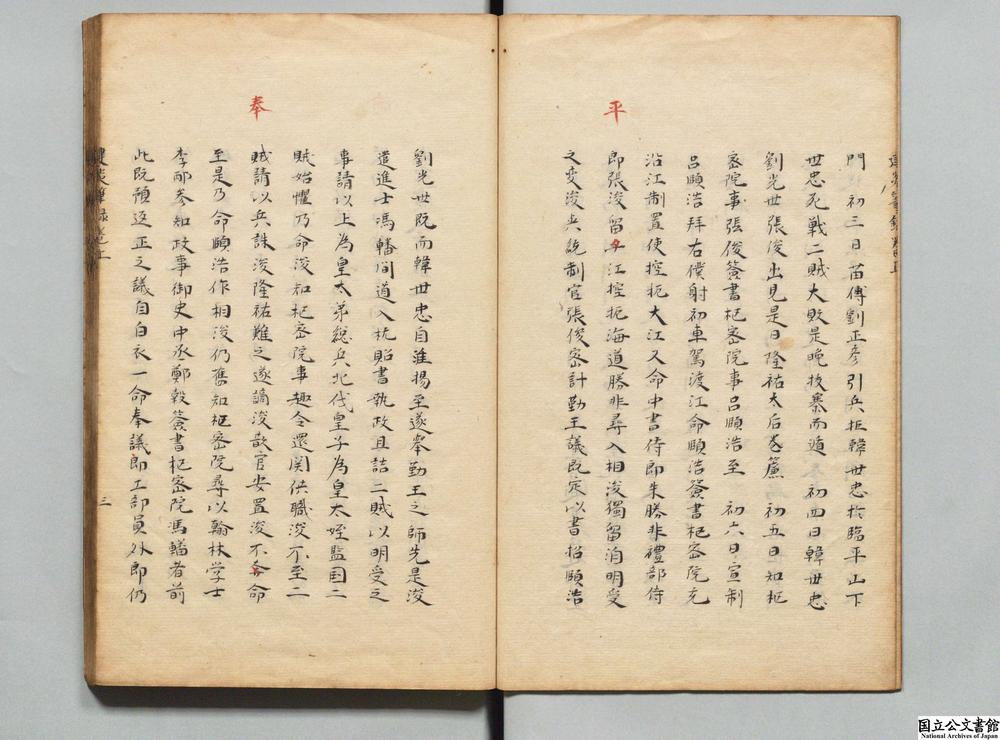 平
門 初三日苗傅劉正彥引兵拒韓世忠於臨平山下
世忠死戰二賊大敗是晚拔寨而遁 初四日韓世忠
劉光世張俊出見是日隆祐太后卷簾 初五日知樞
密院事張俊簽書樞密院事呂頤浩至 初六日宣制
呂頤浩拜右僕射初車駕渡江命頤浩簽書樞密院充
沿江制置使控扼大江又命中書侍郎朱勝非禮部侍
郎張浚留江控扼海道勝非尋入相浚獨留洎明受
之变浚兵說制官張俊密計勤王議既定以書招頤浩
奉
劉光世既而韓世忠自淮揚至遂舉勤王之師先是浚
遣進士馮轓間道入杭貽書執政且詰二賊以明受之
事請以上為皇太弟總兵北伐皇子為皇太姪監国二
賊始懼乃命浚知樞密院事趣令還闕供職浚不至二
賊請以兵誅浚隆祐難之遂謫浚散官安置浚不命
至是乃命頤浩作相浚仍舊知樞密院尋以翰林学士
李邴参知政事御史中丞鄭瑴簽書樞密院馮轓者前
此既預返正之議自白衣一命奉議郎工部員外郎仍
三
国立公文書館
National Archives of Japan